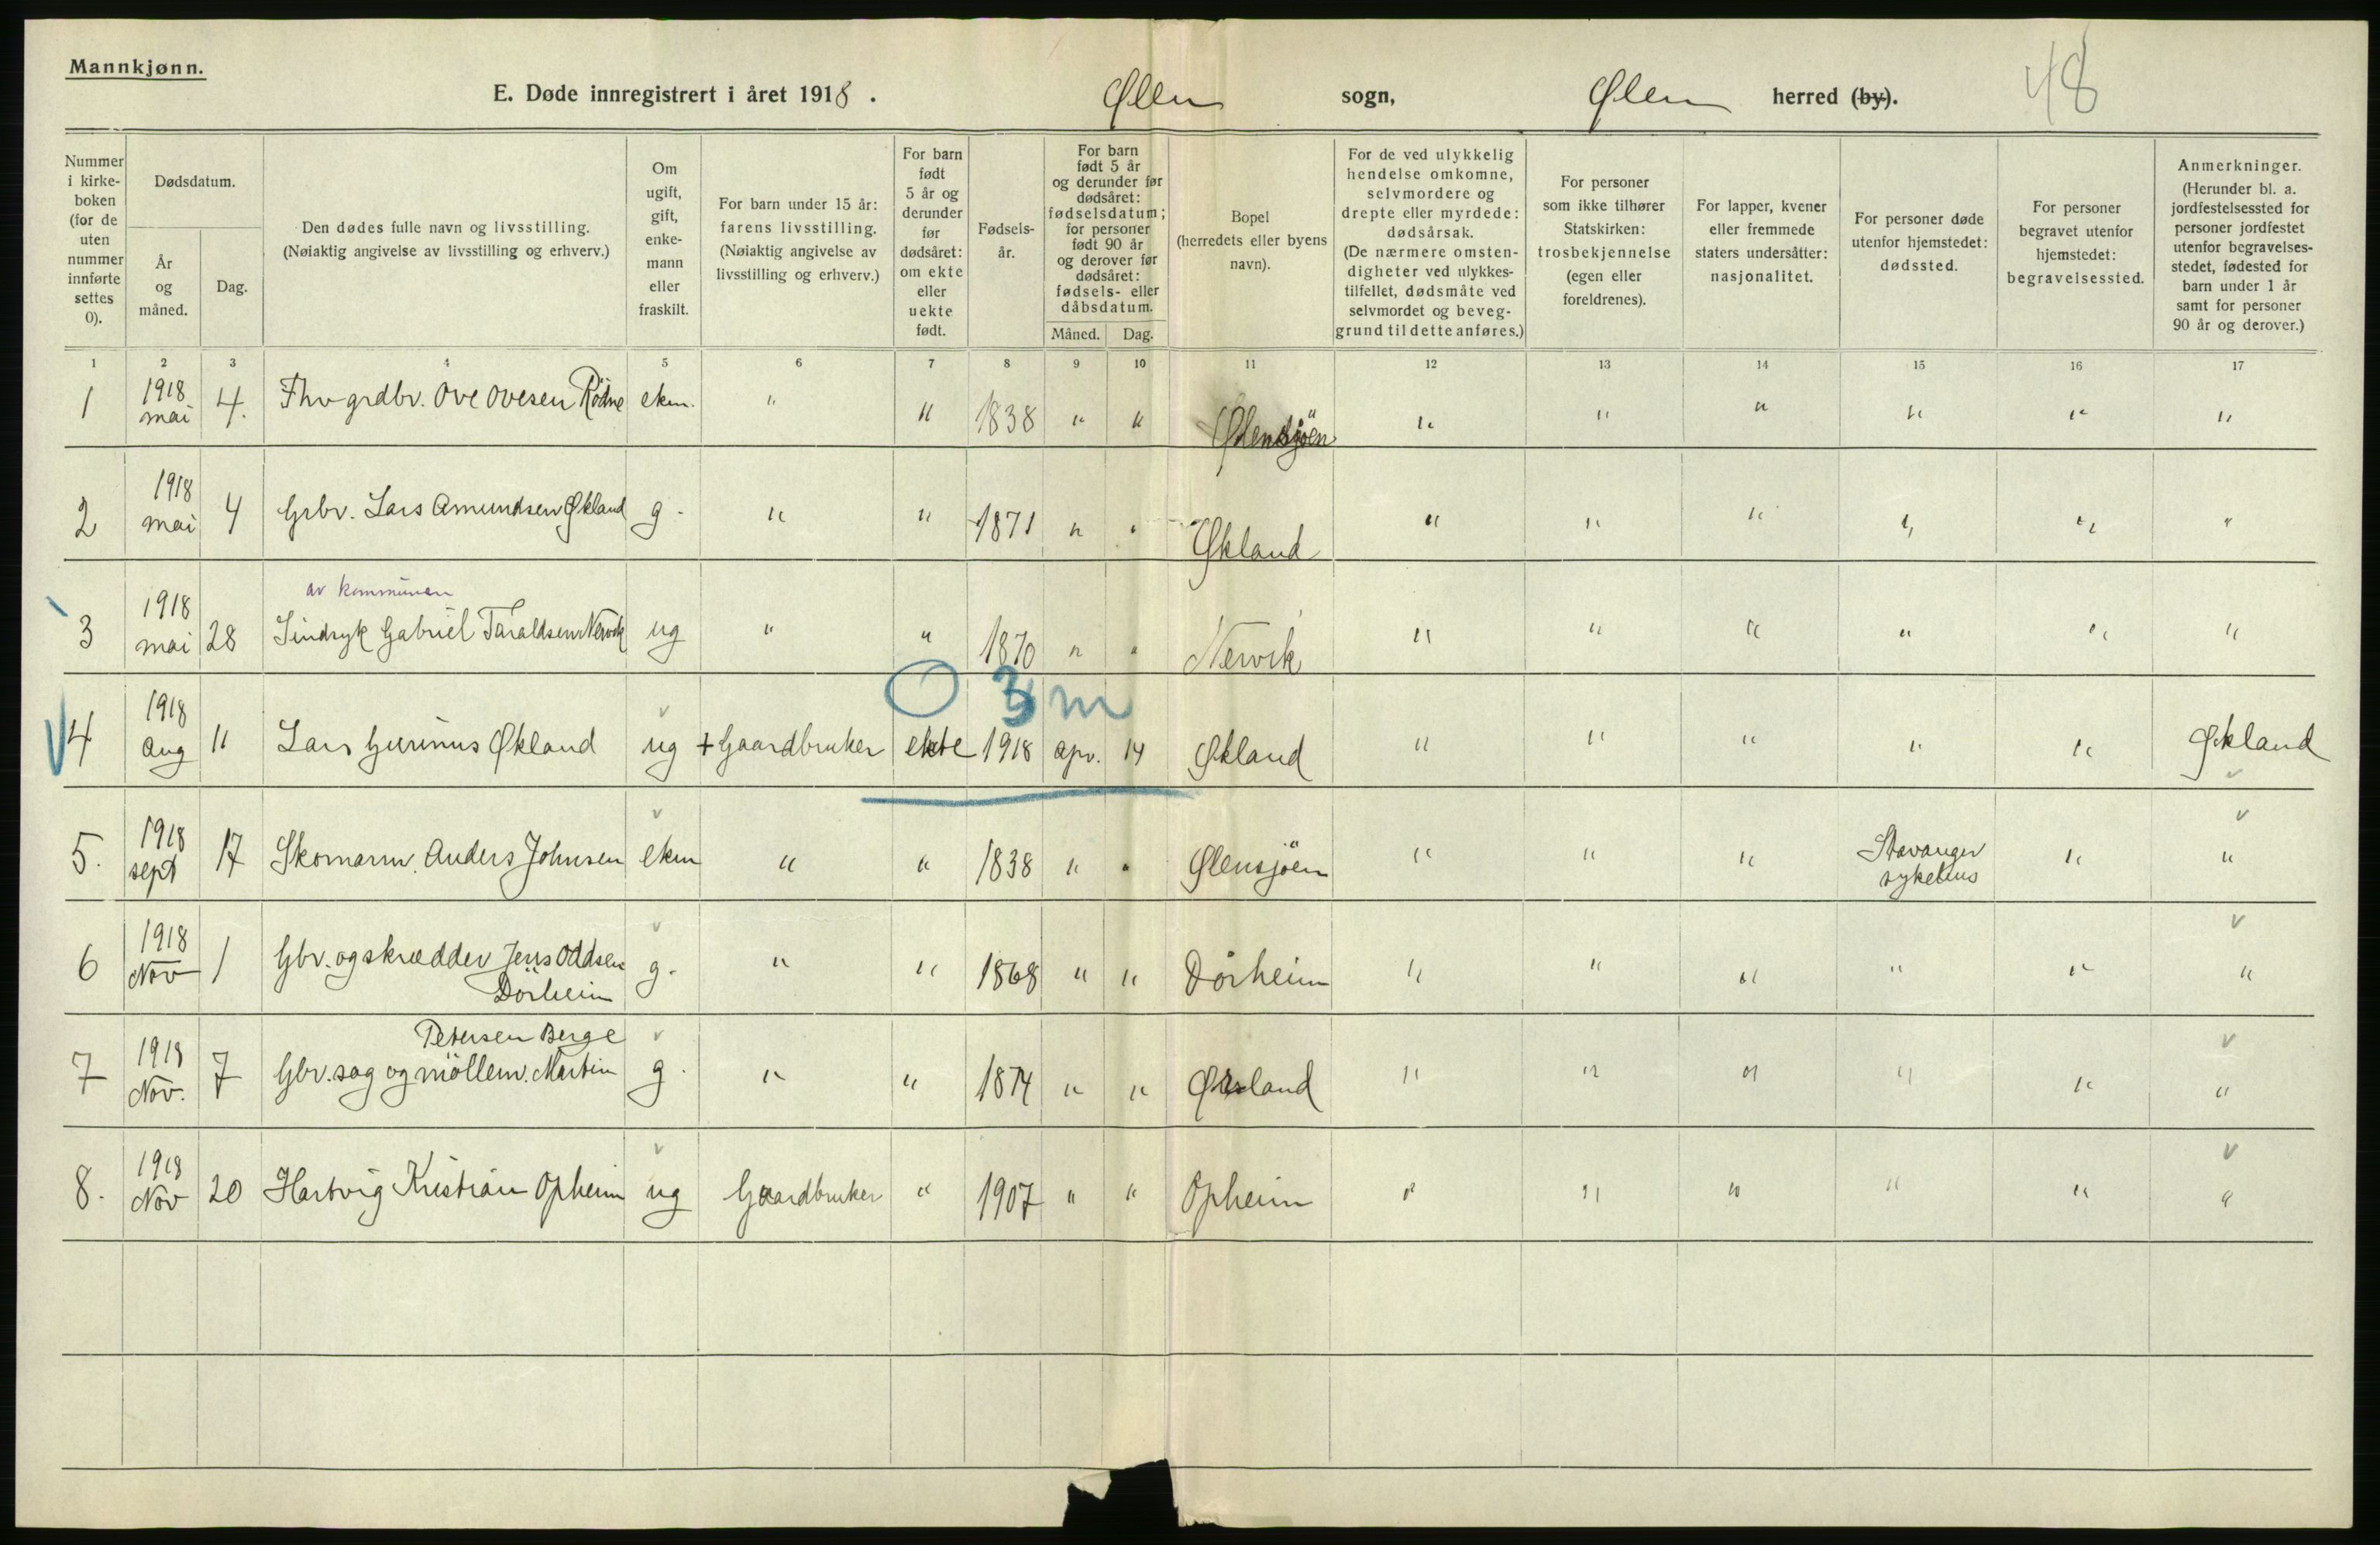 Mannkjønn.
E. Døde innregistrert i året 1918. Ølen sogn, Ølen herred (by). 48
Nummer i kirke-boken (for de uten nummer innførte settes 0).
Dødsdatum.
År og måned.
Dag.
Den dødes fulle navn og livsstilling.
(Nøiaktig angivelse av livsstilling og erhverv.)
Om ugift, gift, enke-mann eller fraskilt.
For barn under 15 år: farens livsstilling.
(Nøiaktig angivelse av livsstilling og erhverv.)
For barn født 5 år og derunder før dødsåret: om ekte eller uekte født.
Fødsels-år.
For barn født 5 år og derunder før dødsåret: fødselsdatum; for personer født 90 år og derover før dødsåret: fødsels- eller dåbsdatum.
Måned.
Dag.
Bopel
(herredets eller byens navn).
For de ved ulykkelig hendelse omkomne, selvmordere og drepte eller myrdede: dødsårsak.
(De nærmere omsten-digheter ved ulykkes-tilfellet, dødsmåte ved selvmordet og beveg-grund til dette anføres.)
For personer som ikke tilhører Statskirken: trosbekjennelse
(egen eller foreldrenes).
For lapper, kvener eller fremmede staters undersåtter: nasjonalitet.
For personer døde utenfor hjemstedet: dødssted.
For personer begravet utenfor hjemstedet: begravelsessted.
Anmerkninger.
(Herunder bl. a. jordfestelsessted for personer jordfestet utenfor begravelses-stedet, fødested for barn under 1 år samt for personer 90 år og derover.)
1 2 3 4 5 6 7 8 9 10 11 12 13 14 15 16 17
1 1918 mai 4. Fhv grdbr. Ove Ovesen Rödne ekm. " " 1838 " " Ølensjöen " " " " " "
2 1918 mai 4 Grbr. Lars Amundsen Økland g. " " 1871 " " Økland " " " " " "
av kommunen
3 1918 mai 28 Sindsyk Gabriel Taraldsen Nervik ug " " 1870 " " Nervik " " " " " "
3 m
4 1918 Aug 11 Lars Gurinus Økland ug + Gaardbruker ekte 1918 apr. 14 Økland " " " " " Økland
5. 1918 sept 17 Skomarm. Anders Johnsen ekm " " 1838 " " Ølensjöen " " " Stavanger sykehus " "
6 1918 Nov 1 Gbr. og skrædder Jens Oddsen Dörheim g. " " 1868 " " Dörheim " " " " " "
Petersen Berge
7 1918 Nov. 7 Gbr. sag og möllem. Martin g. " " 1874 " " " " " " " "
8. 1918 Nov 20 Hartvig Kristian Opheim ug Gaardbruker " 1907 " " Opheim " " " " " "